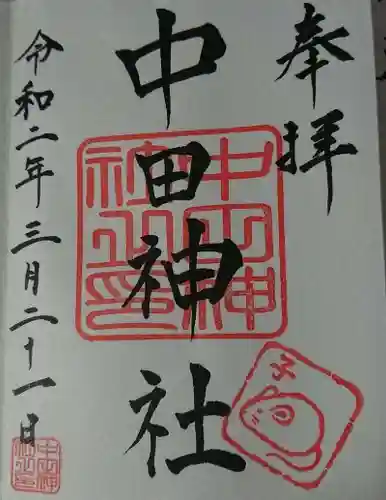 奉拝
中田神社
中田神社之印
子
令和二年三月二十一日